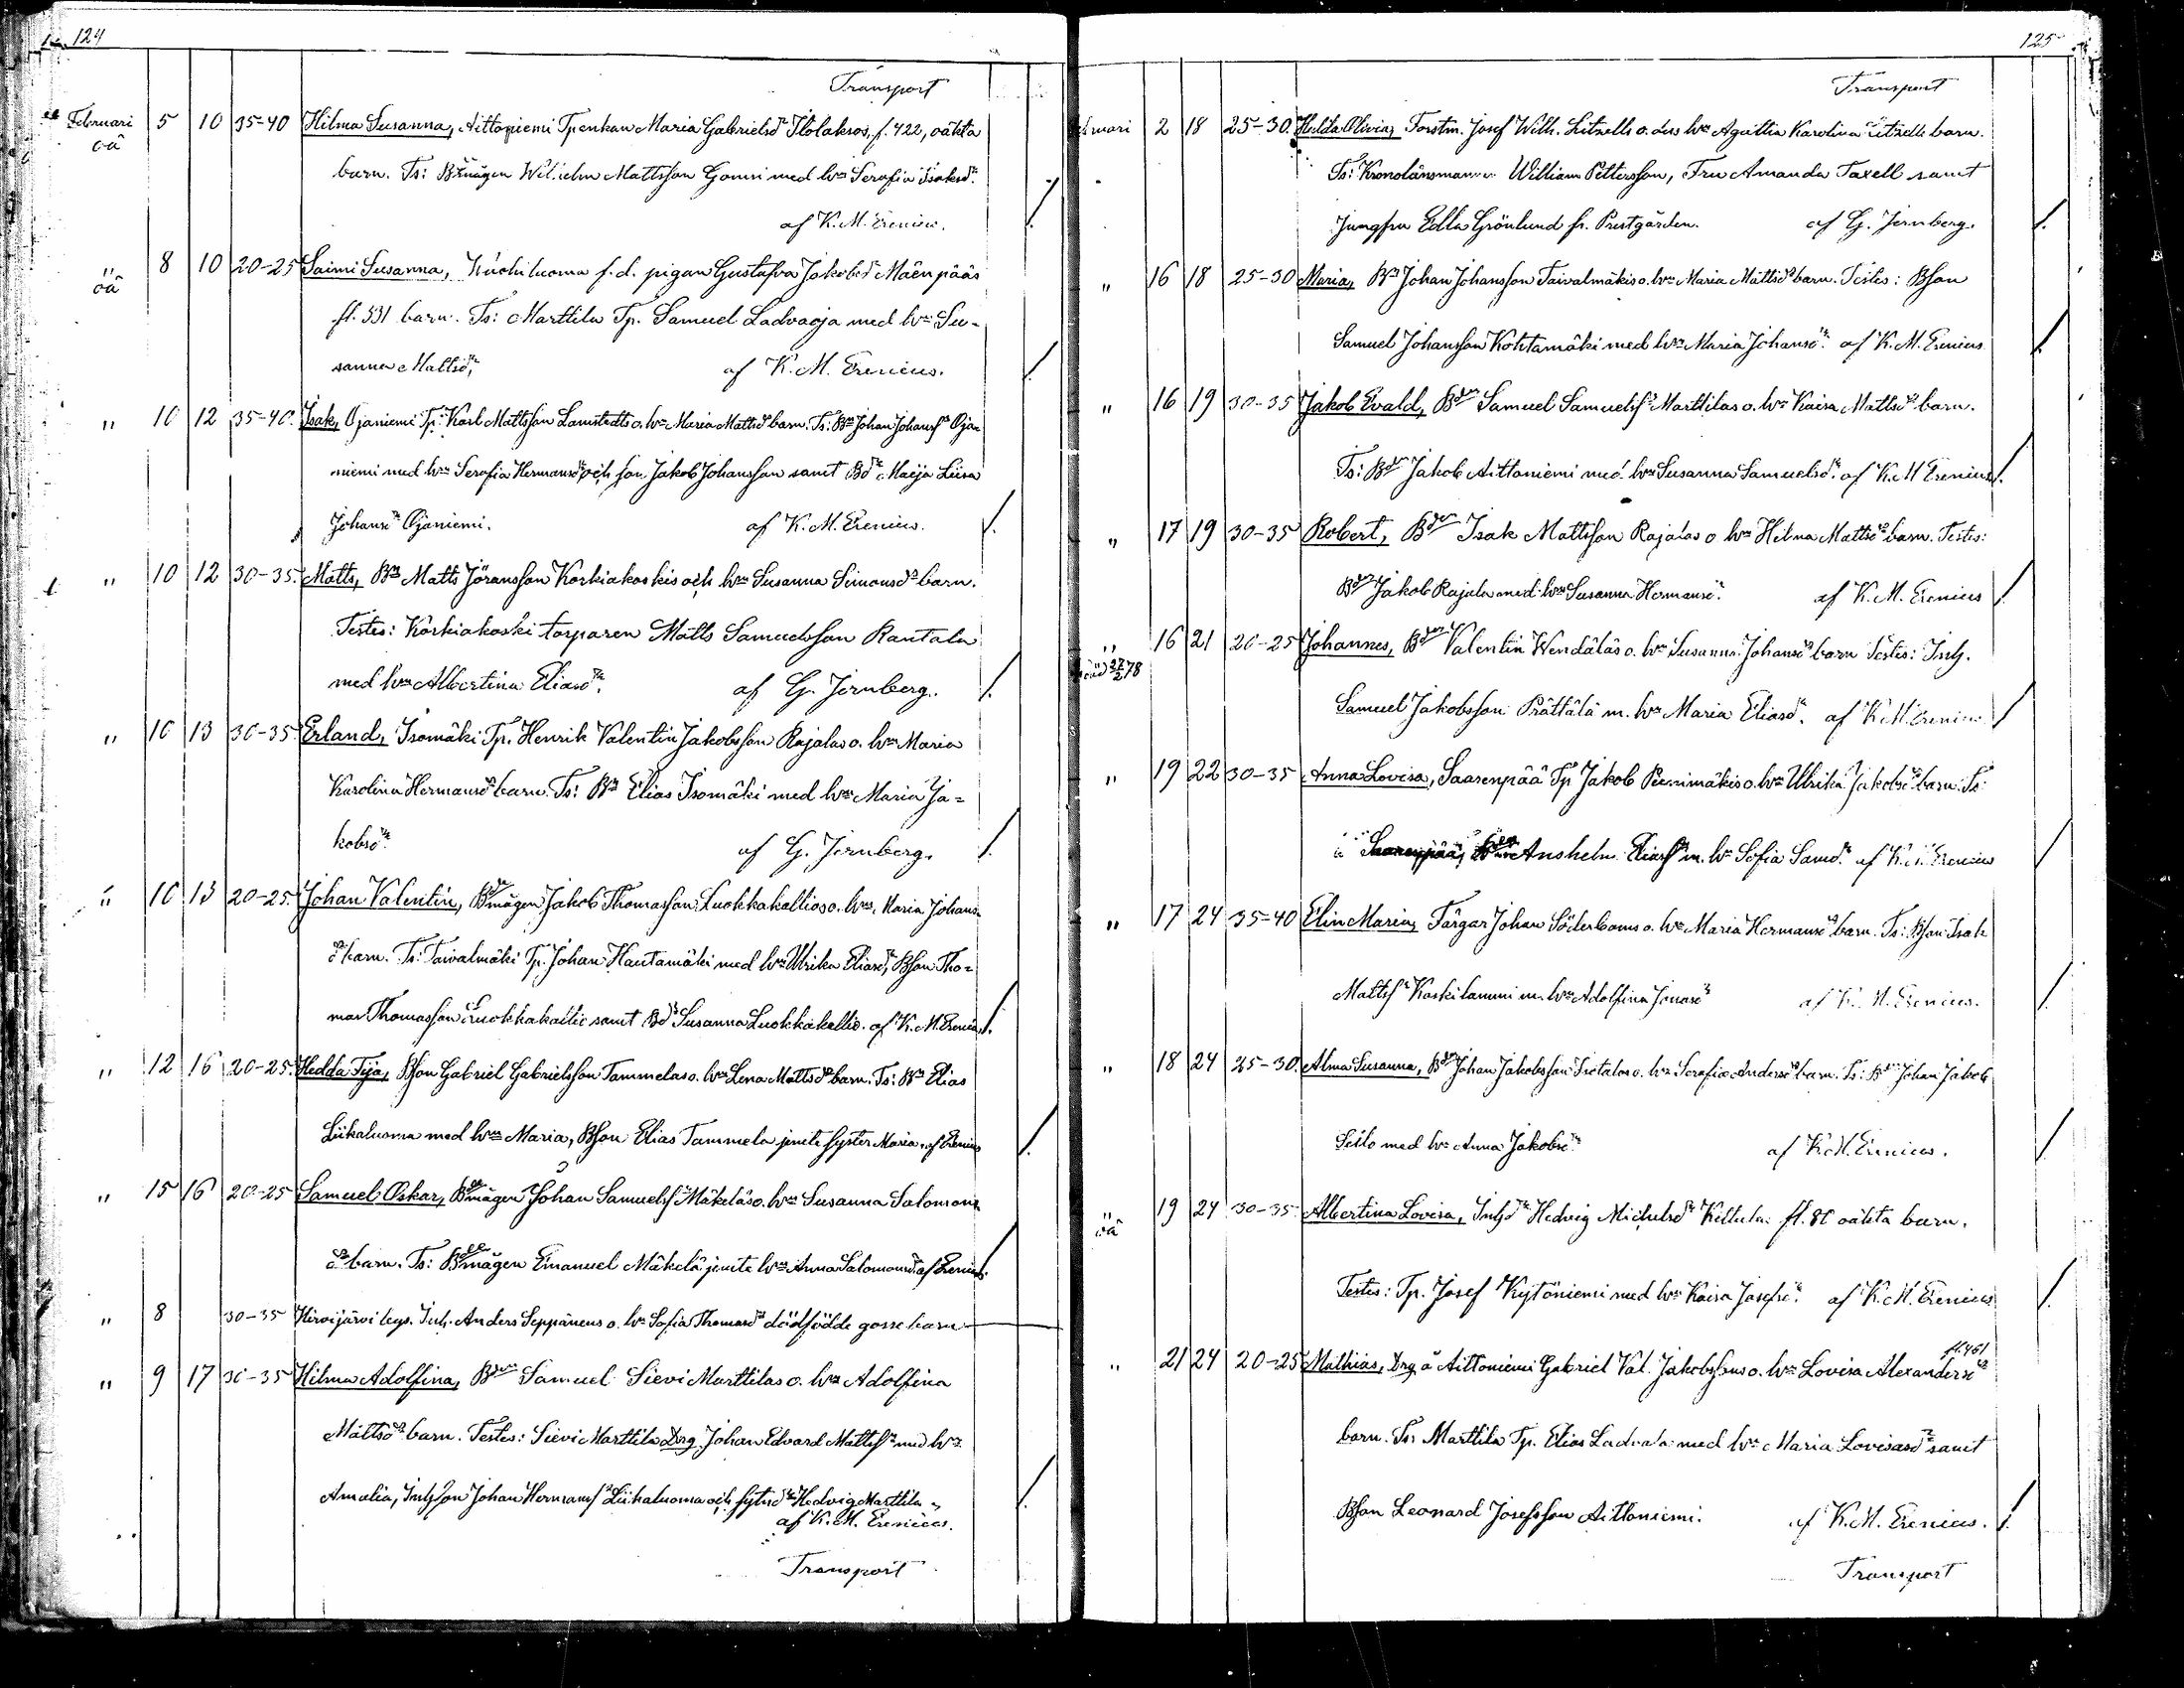 124
Transport
Februari 5 10 35-40 Hilma Susanna, Aittoniemi Tpenkan Maria Gabrielsdr Ilolaksos, f. 422, oäkta
oä
barn. Ts: Bmågen Wilhelm Mattsson Gomsi med hu Serafia Isaksdr.
af K. M. Erenius.
" 8 10 20-25 Saimi Susanna, f. d. pigan Gustafva Jakobsdr Mäenpääs
oä
fl. 531 barn. Ts: Marttila Tp. Samuel Ladvaoja med hu Su-
sanna Mattsdr, af K. M. Erenius.
" 10 12 35-40. Isak, Ojaniemi Tp. Karl Mattsson Lamstedts o. hu Maria Mattsdr barn. Ts: Bn Johan Johanss Oja-
niemi med hu Serafia Hermansdr och son Jakob Johansson samt Bdr Maija Liisa
Johansdr Ojaniemi. af K. M. Erenius.
" 10 12 30-35. Matts, Bn Matts Jöransson Korkiakoskis och hu Susanna Simonsdr barn.
Testes: Korkiakoski torparen Matts Samuelsson Rantala
med hu Albertina Eliasdr. af G. Jernberg.
" 10 13 30-35. Erland, Isomäki Tp. Henrik Valentin Jakobsson Rajalas o. hu Maria
Karolina Hermansdr barn. Ts: Bn Elias Isomäki med hu Maria Ja-
kobsdr. af G. Jernberg.
" 10 13 20-25. Johan Valentin, Bmågen Jakob Thomasson Luokkakallios o. hu Maria Johans-
dr barn. Ts: Taivalmäki Tp. Johan Hautamäki med hu Ulrika Eliasdr, Bson Tho-
mas Thomasson Luokkakallio samt Bdr Susanna Luokkakallio. af K. M. Erenius.
" 12 16 20-25. Hedda Fija, Bson Gabriel Gabrielsson Tammelas o. hu Lena Mattsdr barn. Ts: Bn Elias
Liikaluoma med hu Maria, Bson Elias Tammela jemte syster Maria. af Erenius
" 15 16 20-25 Samuel Oskar, Bmågen Johan Samuelss Mäkeläs o. hu Susanna Salomons-
dr barn. Ts: Bmågen Emanuel Mäkelä jemte hu Anna Salomonsdr. af Erenius.
" 8 30-35 Hirvijärvi Inh. Anders Seppänens o. hu Sofia Thomasdr dödfödde gossebarn
" 9 17 30-35 Hilma Adolfina, Bden Samuel Sievi Marttilas o. hu Adolfina
Mattsdr barn. Testes: Sievi Marttila Drg. Johan Edvard Mattss med hu
Amalia, Inhson Johan Hermanss Liikaluoma och Hedvig Marttila.
af K. M. Erenius.
Transport
125
Transport
2 18 25-30. Hilda Olivia, Forstm. Josef Wilh. Litzells o. dess hu Agatha Karolina Litzells barn.
Ts: Kronolänsmannen William Pettersson, Fru Amanda Taxell samt
Jungfru Edla Grönlund fr. Prestgården. af G. Jernberg.
" 16 18 25-30 Maria, Bn Johan Johansson Taivalmäkis o. hu Maria Mattsdr barn. Testes: Bson
Samuel Johansson Kohtamäki med hu Maria Johansdr. af K. M. Erenius
" 16 19 30-35 Jakob Evald, Bden Samuel Samuelss Marttilas o. hu Kaisa Mattsdr barn.
Ts: Bdn Jakob Aittoniemi med hu Susanna Samuelsdr. af K. M Erenius.
" 17 19 30-35 Robert, Bden Isak Mattsson Rajalas o hu Hilma Mattsdr barn. Testes:
Bden Jakob Rajala med hu Susanna Hermansdr. af K. M. Erenius
" 16 21 20-25 Johannes, Bden Valentin Wendäläs o. hu Susanna Johansdr barn Testes: Inh.
Samuel Jakobsson Prättälä m. hu Maria Eliasdr. af K. M. Erenius
" 19 22 30-35 Anna Lovisa, Saarenpää Tp Jakob Peurimäkis o. hu Ulrika Jakobsdr barn. Ts
Anshelm Eliass m. hu Sofia Samdr. af K. M. Erenius
" 17 24 35-40 Elin Maria, Färgar Johan Söderbacks o. hu Maria Hermansdr barn. Ts: Bson Isak
Mattss Koskilammi m. hu Adolfina Jonasdr af K. M. Erenius.
" 18 24 25-30. Alma Susanna, Bdn Johan Jakobsson o. hu Serafia Andersdr barn. Ts: Bdn Johan Jakobs
med hu Anna Jakobsdr af K. M. Erenius.
" 19 24 30-35. Albertina Lovisa, Inhdr Hedvig Michelsdr Keltula fl. 80 oäkta barn.
oä
Testes: Tp. Josef Kytöniemi med hu Kaisa Josefsdr. af K. M. Erenius
fl. 461
" 21 24 20-25 Mathias, Drg å Aittoniemi Gabriel Val. Jakobssons o. hu Lovisa Alexandersdr
barn. Ts: Marttila Tp. Elias Ladvala med hu Maria Lovisasdr samt
Bson Leonard Josefsson Aittoniemi. af K. M. Erenius.
Transport